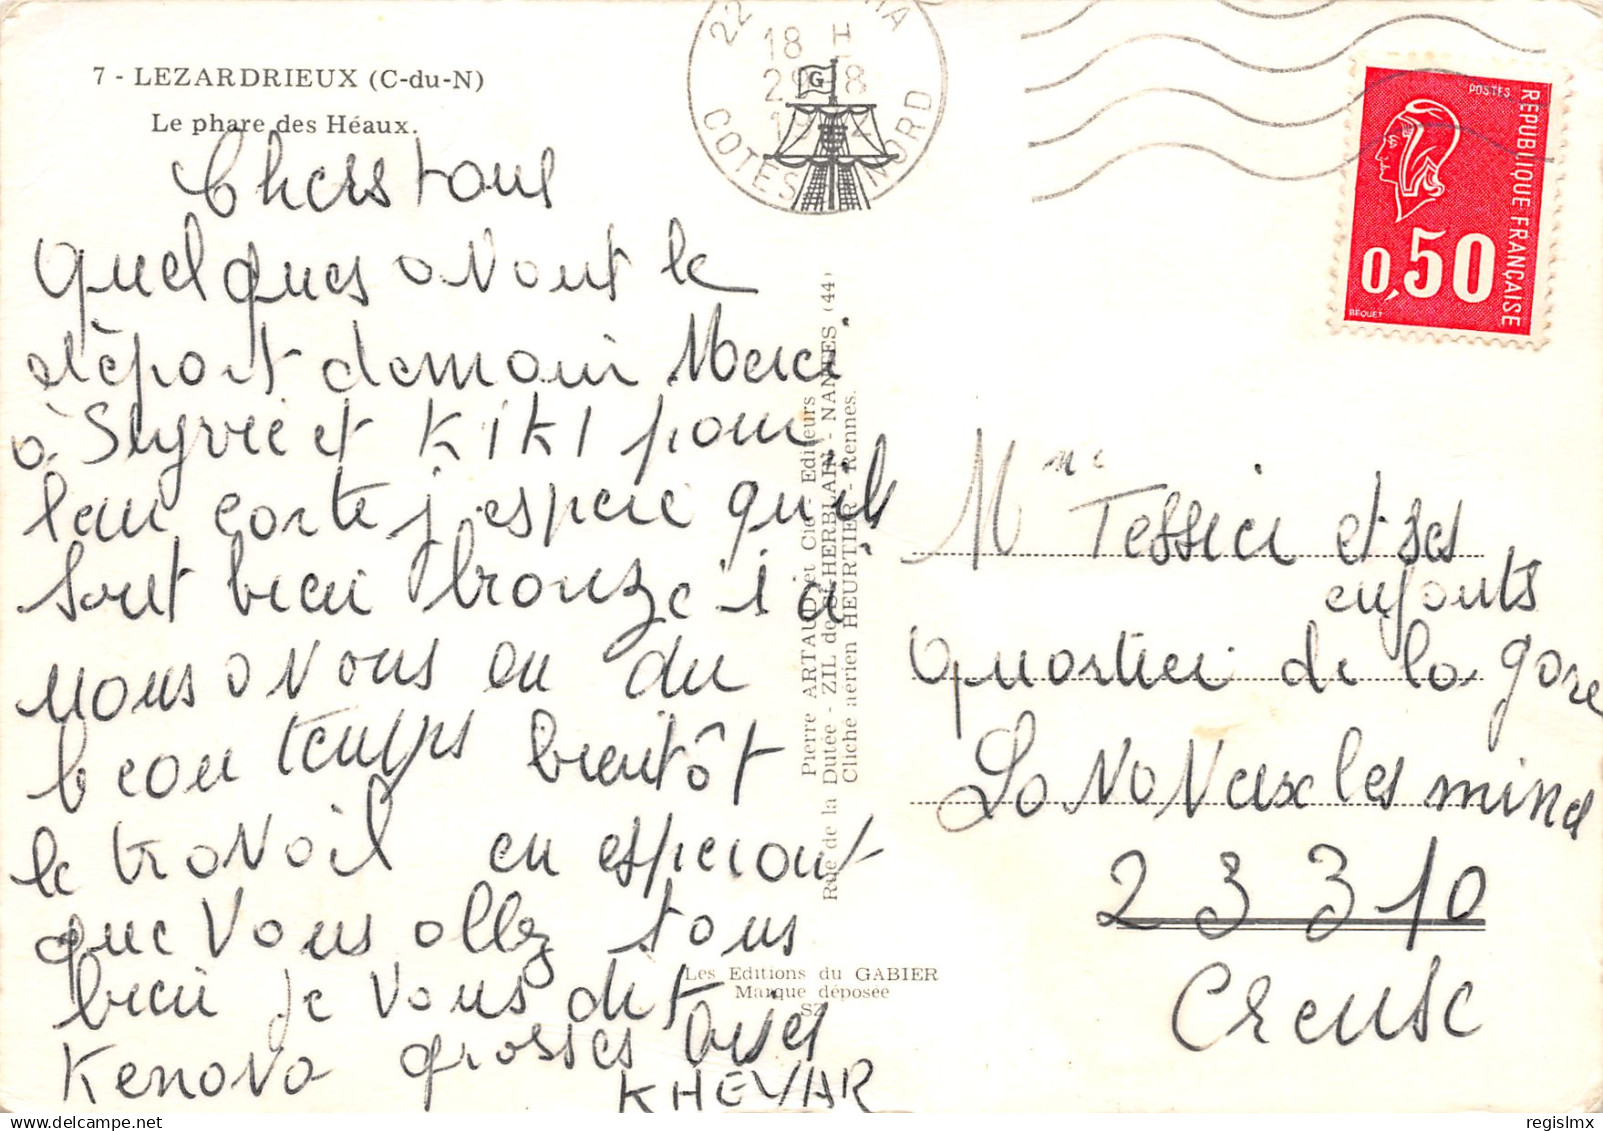 7 - LEZARDRIEUX (C-du-N)
Le phare des Héaux.
Chers tous
quelques avant le
départ demain Merci
à Sylvie et KIKI pour
leur carte j'espère qu'ils
sont bien bronzé i ci
nous avons eu du
beau temps bientôt
le travail en esperant
que vous allez tous
bien je vous dit
Kenavo grosses bises
KHEVAR
22
18 H
29-8
19
COTES NORD
G
Pierre ARTAUD et Cie Editeurs
Rue de la Dutée - ZIL de St-HERBLAIN - NANTES (44)
Cliché aérien HEURTIER - Rennes.
Les Editions du GABIER
Marque déposée
POSTES
REPUBLIQUE FRANÇAISE
0,50
BEQUET
Mme Tessier et ses
enfants
quartier de la gare
La NaVeux les mines
23310
Creuse
regislmx